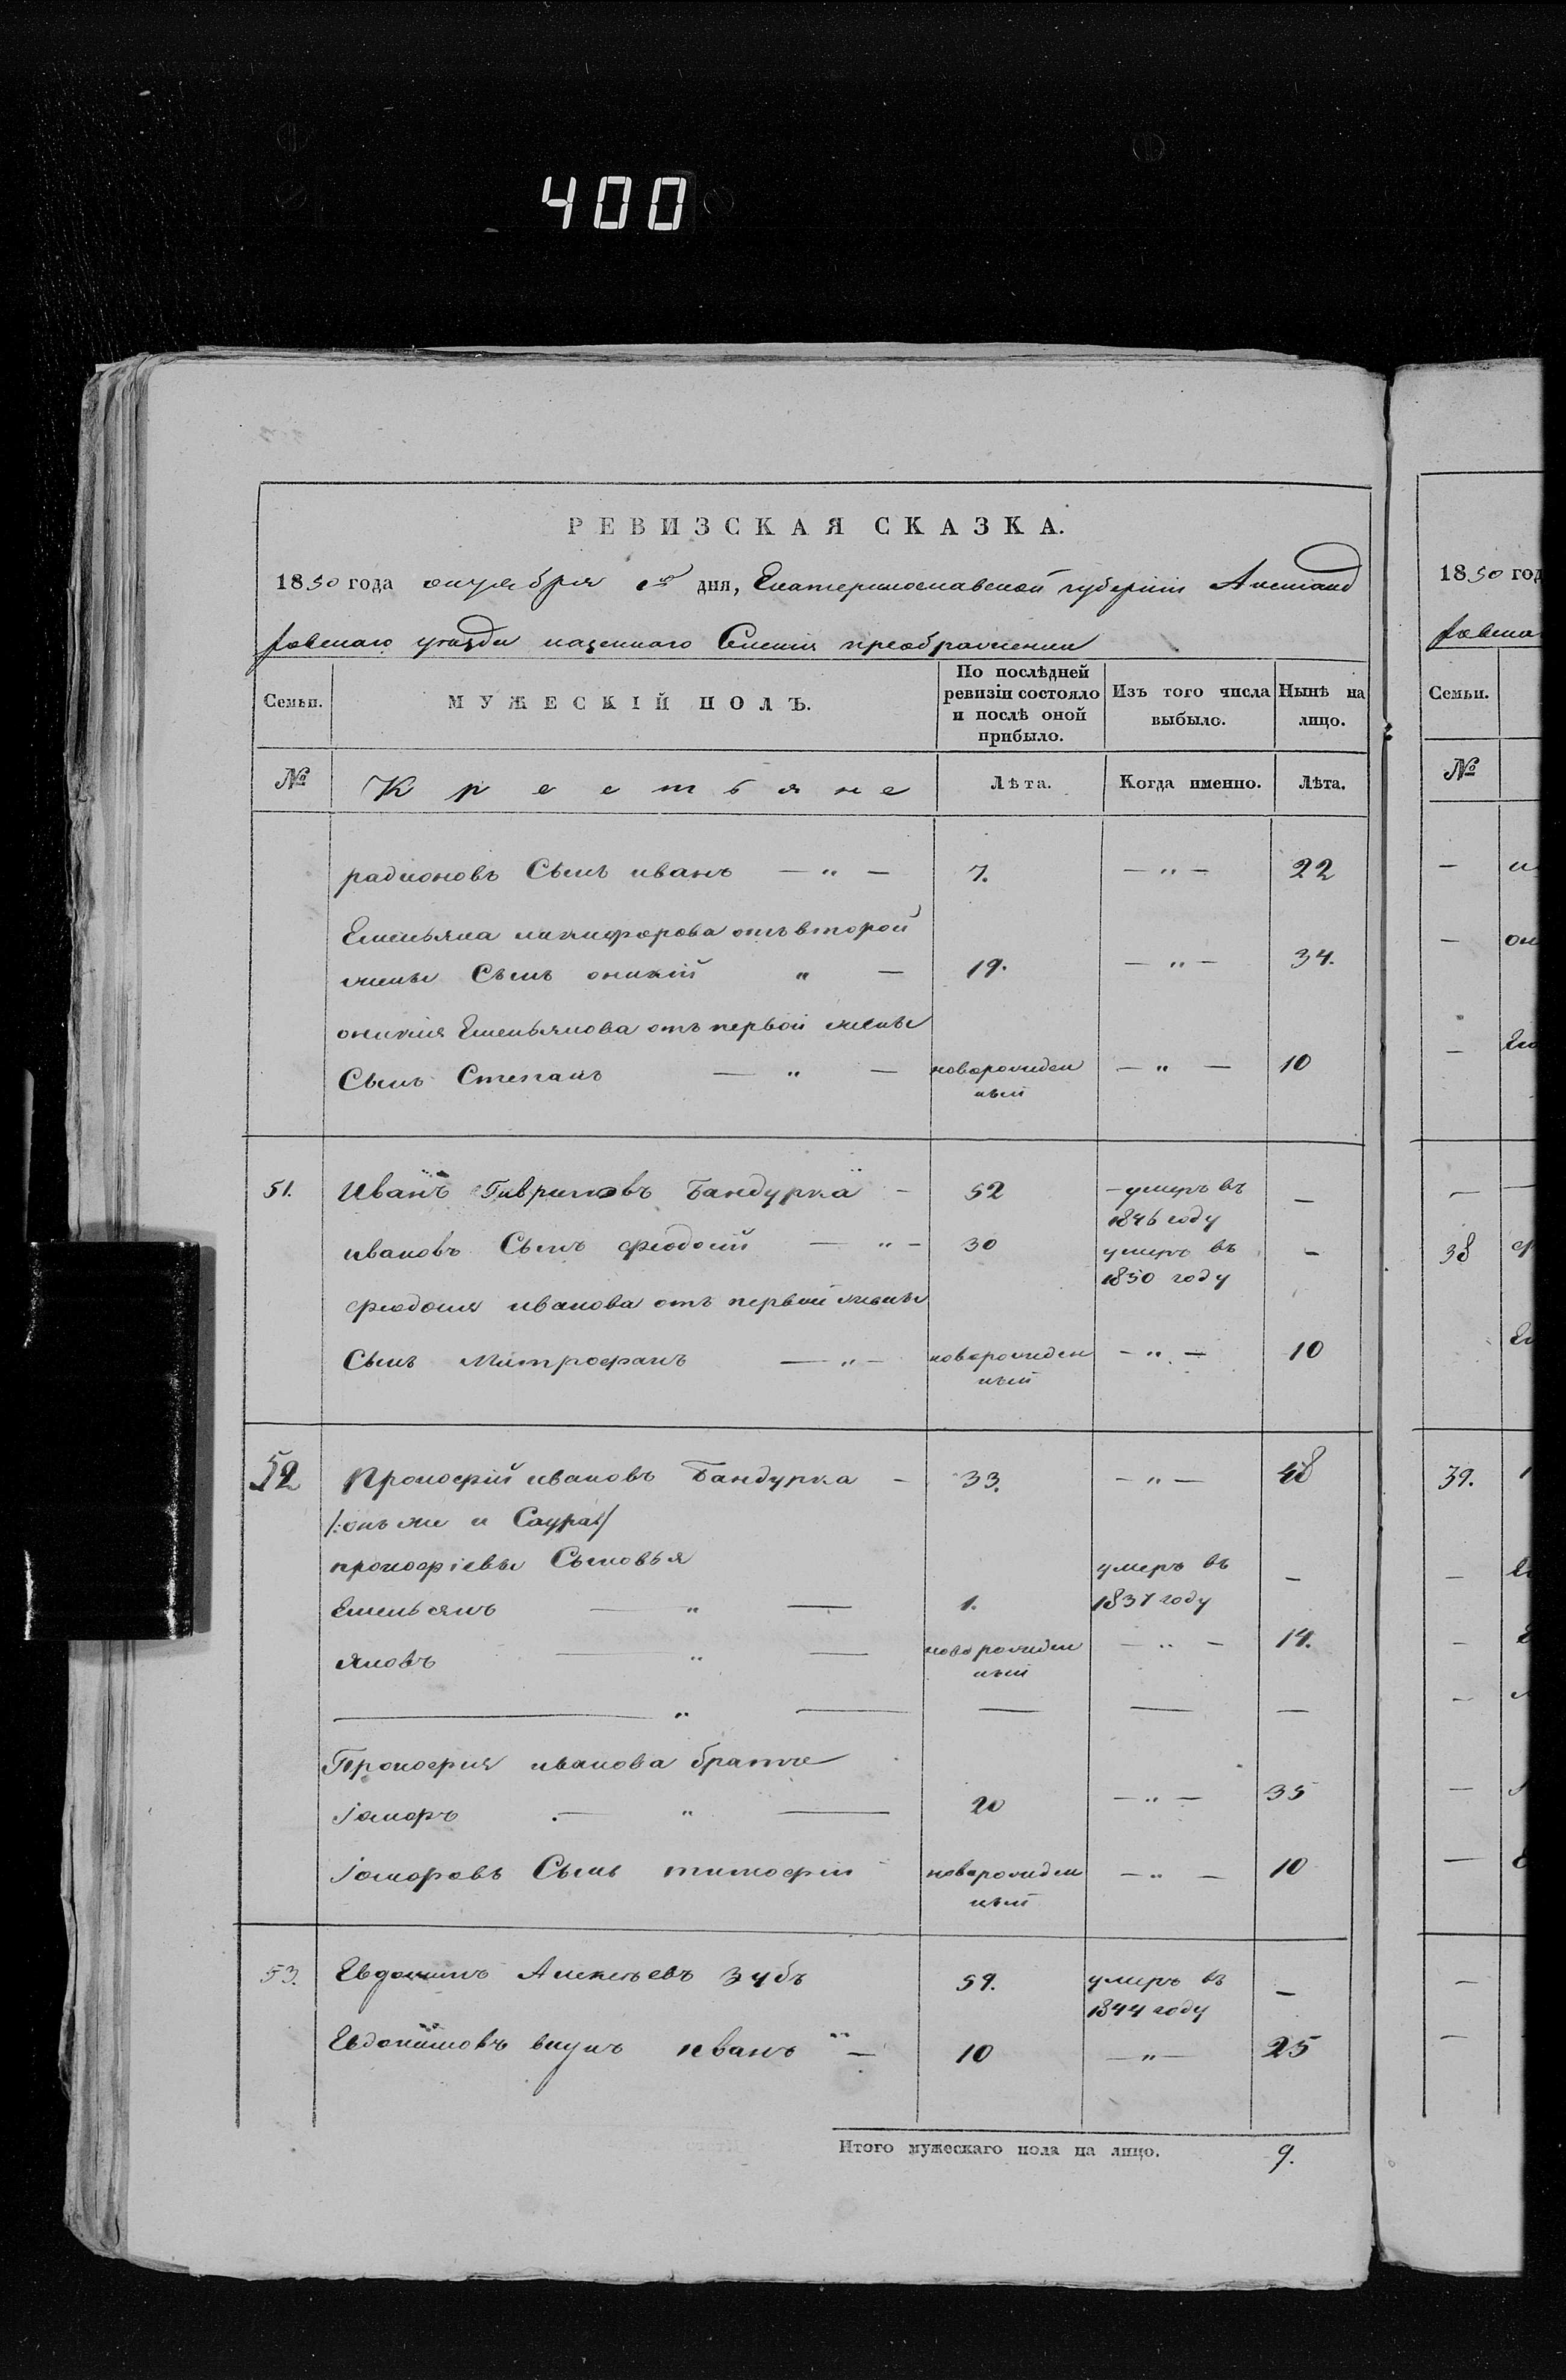 400
РЕВИЗСКАЯ СКАЗКА.
1850 года октября 1го дня, Екатеринославской губернiи Александ
ровскаго уезда казеннаго Селения преображенки
Семьи. МУЖЕСКIЙ ПОЛЪ. По послѣдней ревизiи состояло и послѣ оной прибыло. Изъ того числа выбыло. Нынѣ на лицо.
№ Крестьяне Лѣта. Когда именно. Лѣта.
радионовъ Сынъ иванъ — " — 7. — " — 22
Емельяна никифорова отъ второй
жены Сынъ оникiй " — 19. — " — 34.
оникия Емельянова отъ первой жены
Сынъ Степанъ — " — новорожден ный — " — 10
51. Иванъ Гавриловъ Бандурка — 52 — умеръ въ 1846 году —
ивановъ Сынъ феодосiй — " — 30 умеръ въ 1850 году —
феодосия иванова отъ первой жены
Сынъ Митрофанъ — " — новорожден ный — " — 10
52 Прокофiй ивановъ Бандурка — 33. — " — 48
/:онъ же и Саура:/
прокофiевы Сыновья
Емельянъ — " — 1. умеръ въ 1837 году —
Яковъ — " — новорожден ный — " — 14.
— " — — — —
Прокофия иванова братье
— " — 20 — " — 35
Сынъ тимофiй новорожден ный — " — 10
53. Евдокимъ Алексѣевъ Зубъ 59. умеръ въ 1844 году —
Евдокимовъ внукъ иванъ " — 10 — " — 25
Итого мужескаго пола на лицо. 9.
1850 год
ровска
Семьи.
№
38
39.